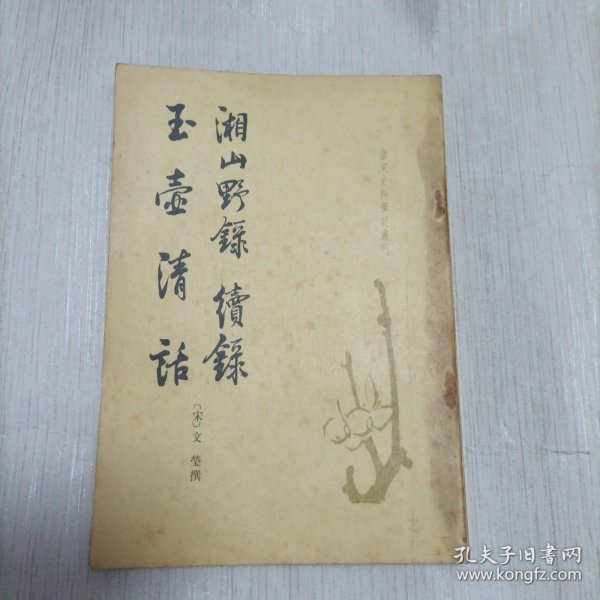 唐宋史料筆記叢刊
湘山野錄 續錄
玉壺清話
〔宋〕文瑩撰
孔夫子旧书网
www.kongfz.com